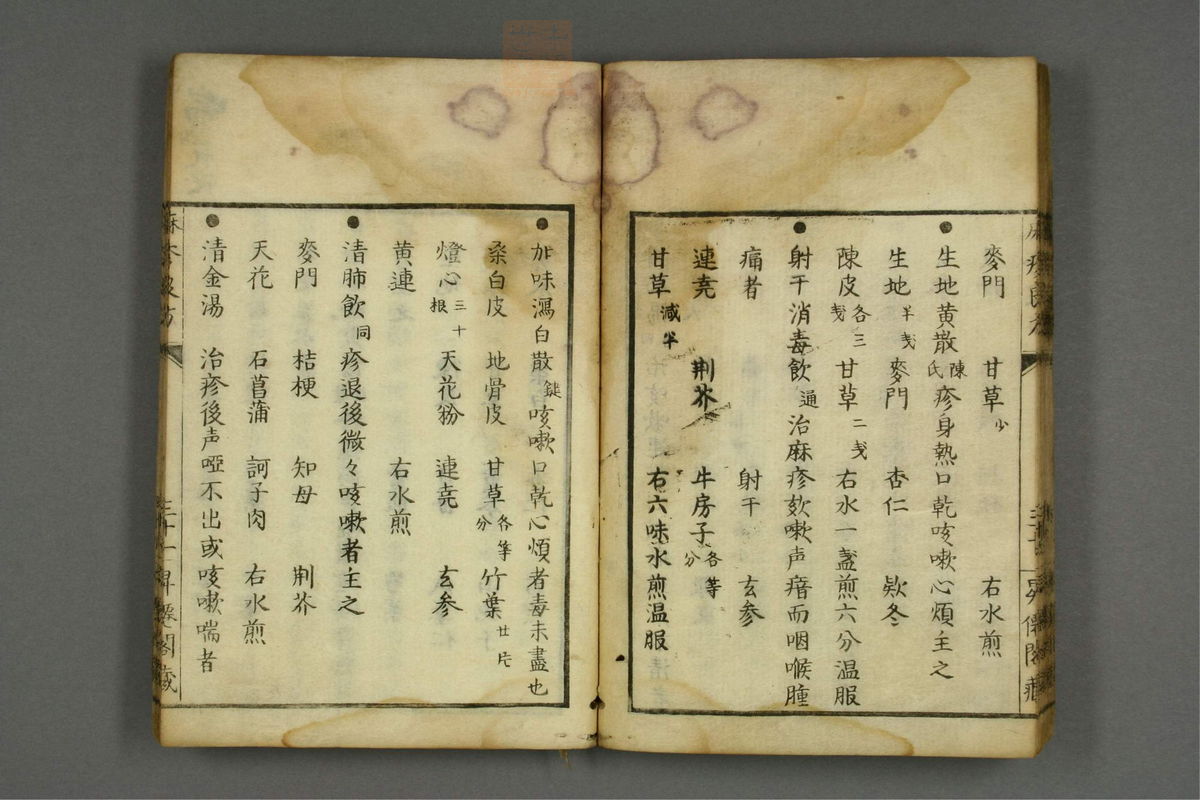 麥門 甘草少 右水煎
●生地黄散陳氏 疹身熱口乾咳嗽心煩主之
生地半戔 麥門 杏仁 欵冬
陳皮各三戔 甘草二戔 右水一盞煎六分温服
●射干消毒飲通 治麻疹欬嗽声瘖而咽喉腫
痛者 射干 玄参
連堯 荆芥 牛房子各等分
甘草減半 右六味水煎温服
●加味瀉白散 咳嗽口乾心煩者毒未盡也
桑白皮 地骨皮 甘草各等分 竹葉廿片
燈心三十根 天花粉 連堯 玄参
黄連 右水煎
●清肺飲同 疹退後微々咳嗽者主之
麥門 桔梗 知母 荆芥
天花 石菖蒲 訶子肉 右水煎
●清金湯 治疹後声啞不出或咳嗽喘者